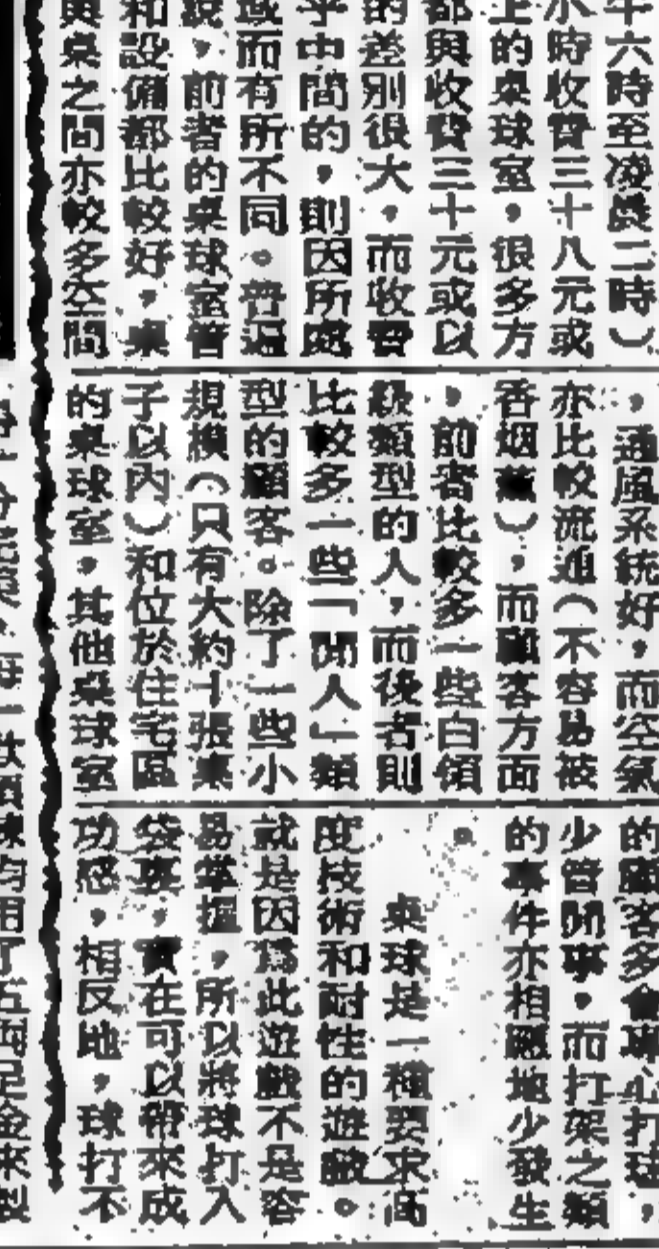 午六時至凌晨二時）
小時收費三十八元或
上的桌球室，很多方
都與收費三十元或以
的差別很大，而收費
乎中間的，則因所處
域而有所不同。普遍
說，前者的桌球室管
和設備都比較好，桌
與桌之間亦較多空間
，通風系統好，而空氣
亦比較流通（不容易被
香烟薰），而顧客方面
，前者比較多一些白領
級類型的人，而後者則
比較多一些「閒人」類
型的顧客。除了一些小
規模（只有大約十張桌
子以內）和位於住宅區
的桌球室，其他桌球室
的顧客多會專心打球，
少管閒事，而打架之類
的事件亦相應地少發生
。
桌球是一種要求高
度技術和耐性的遊戲。
就是因爲此遊戲不是容
易掌握，所以將球打入
袋裏，實在可以帶來成
功感，相反地，球打不